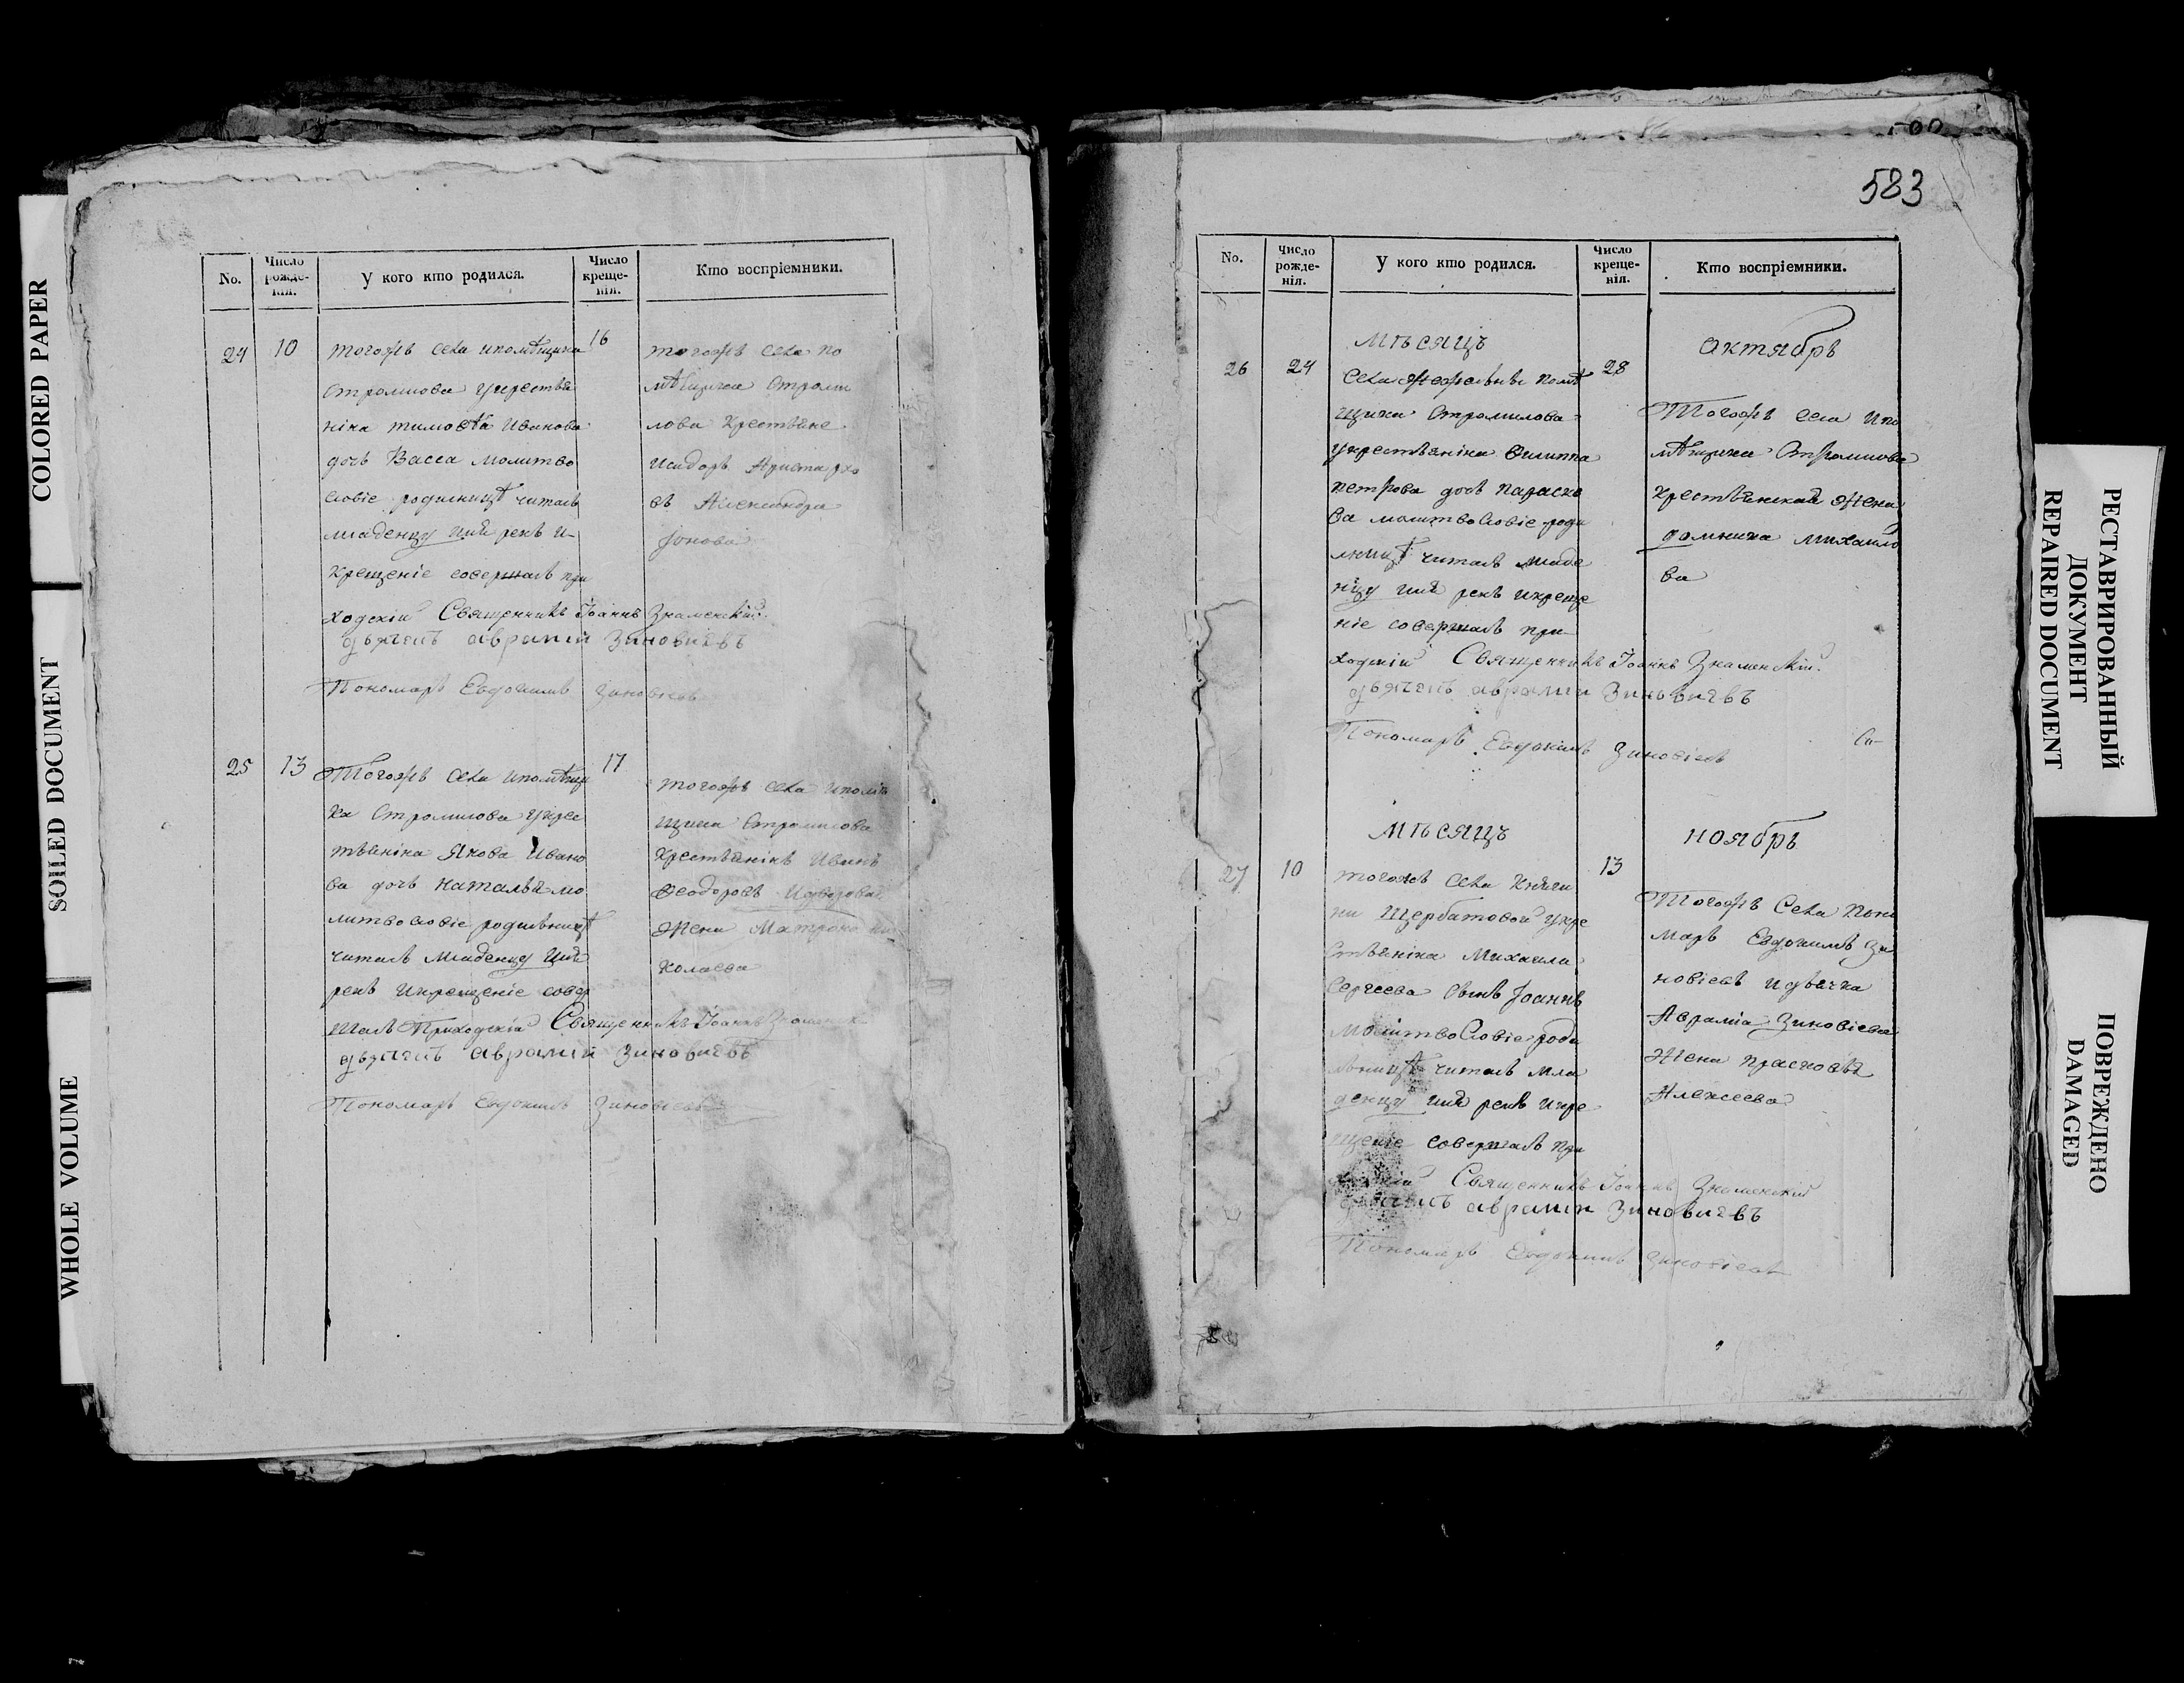 COLORED PAPER
SOILED DOCUMENT
WHOLE VOLUME
No.
Число рожде-нія.
У кого кто родился.
Число креще-нія.
Кто воспріемники.
24
10
тогожъ села ипомѣщика
Стромилова укрестья
ніна тимоѳѣя Иванова
дочь Васса молитво
словіе родилницѣ читалъ
младенцу имя рекъ и-
крещеніе совершалъ при
ходскій Священникъ Іоаннъ Знаменскій
дьячекъ аврамій Зиновиевъ
Пономарь Евдокимъ Зиновіевъ
16
тогожъ села по
мѣщика Строми
лова крестьяне
Исидоръ Аристархо
въ Александра
Іонова
25
13
Тогожъ села ипомѣщи
ка Стромилова укрес
тьяніна Якова Ивано
ва дочь Наталья мо
литвословіе родильницѣ
читалъ младенцу имя
рекъ икрещеніе совер
шалъ Приходскій Священникъ Іоаннъ Знаменск
дьячекъ аврамій Зиновиевъ
Пономарь Евдокимъ Зиновіевъ
17
тогожъ села ипомѣ
щика Стромилова
крестьянінъ Иванъ
Ѳеодоровъ Идворовая
жена Матрона ни
колаева
583
No.
Число рожде-нія.
У кого кто родился.
Число креще-нія.
Кто воспріемники.
Мѣсяцъ
Октябрь
26
24
Села помѣ
щика Стромилова
укрестьяніна Филиппа
петрова дочь параско
ва молитвословіе роди
лницѣ читалъ младе
нцу имя рекъ икреще
ніе совершалъ при-
ходскій Священникъ Іоаннъ Знаменскій
дьячекъ аврамій Зиновиевъ
Пономарь Евдокимъ Зиновіевъ
28
Тогожъ села ипо
мѣщика Стромилова
крестьянская жена
домника михаило
ва
Мѣсяцъ
ноябрь
27
10
тогожъ села Княги
ни Щербатовой укре
стьяніна Михаила
Сергеева сынъ Іоаннъ
молитвословіе роди
льницѣ читалъ мла
денцу имя рекъ икре
щеніе совершалъ при
ходскій Священникъ Іоаннъ Знаменскій
дьячекъ аврамій Зиновиевъ
Пономарь Евдокимъ Зиновіевъ
13
Тогожъ Села Поно
марь Евдокимъ Зи
новіевъ идьячка
Аврамія Зиновіева
жена Прасковья
Алексеева
РЕСТАВРИРОВАННЫЙ
ДОКУМЕНТ
REPAIRED DOCUMENT
ПОВРЕЖДЕНО
DAMAGED